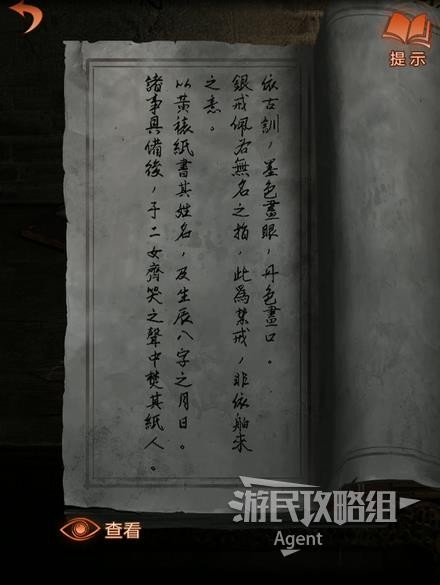 提示
依古訓，墨色畫眼，丹色畫口。
銀戒佩右無名之指，此為禁戒，非依舶來
之意。
以黃裱紙書其姓名，及生辰八字之月日。
諸事具備後，于二女齊哭之聲中焚其紙人。
查看
游民攻略组
Agent